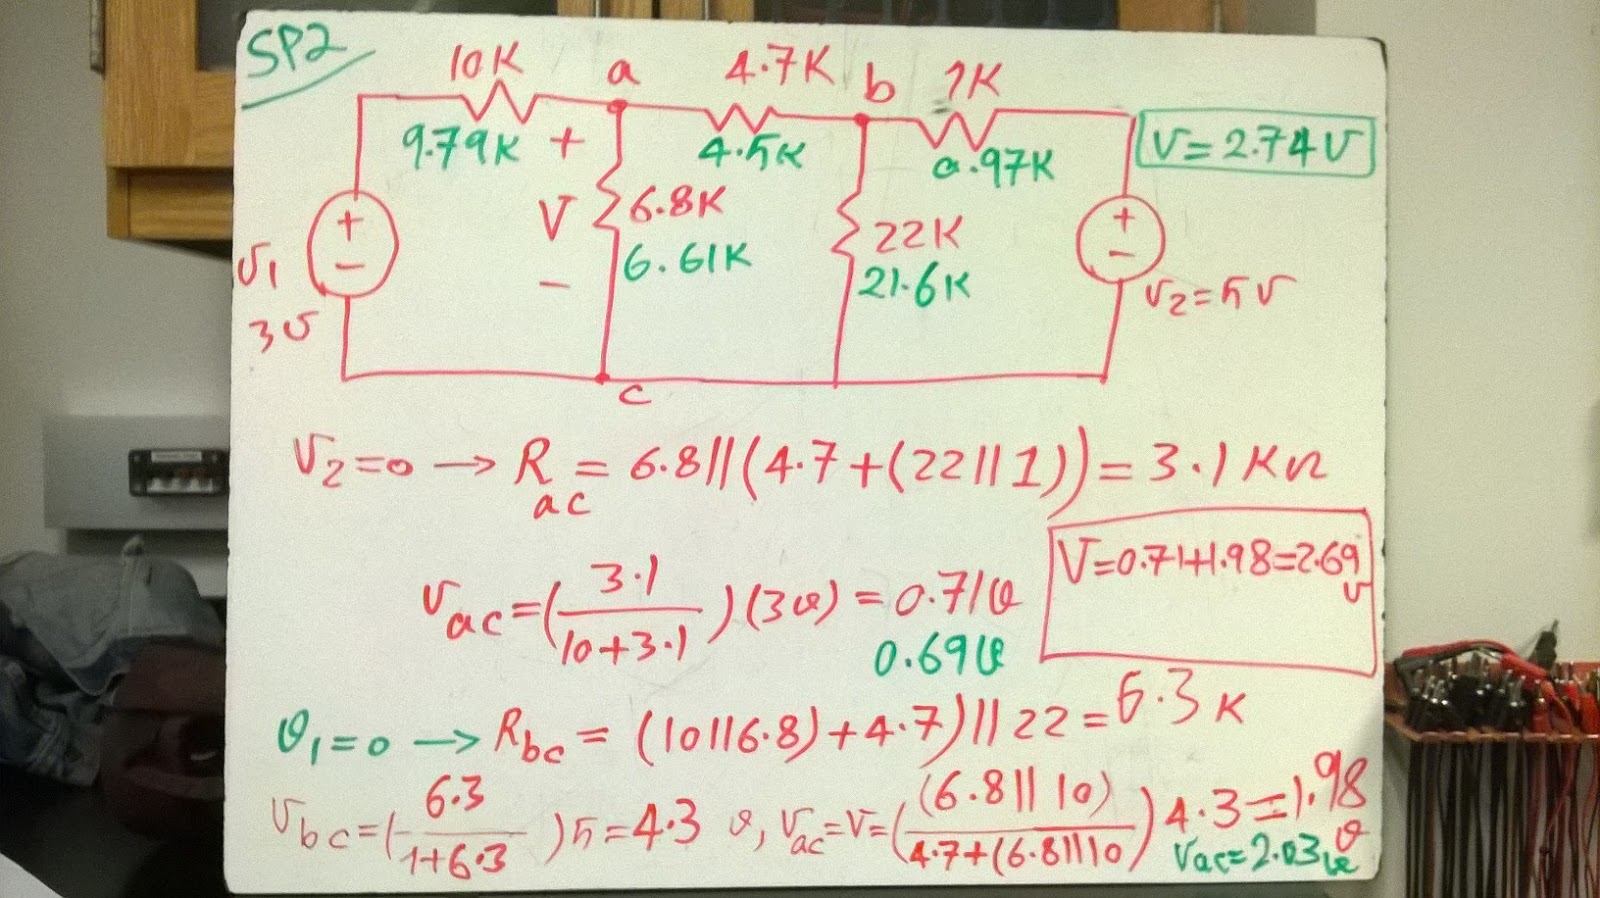 SP2
10K a 4.7K b 1K
9.79K + 4.5K 0.97K V=2.74V
+ V 6.8K 22K +
- 6.61K 21.6K -
V1 - V2=5V
3V
c
V2=0 → Rac = 6.8||(4.7+(22||1))=3.1KΩ
Vac=(3.1/10+3.1)(3V)=0.71V
0.69V
V=0.71+1.98=2.69V
V1=0 → Rbc = (10||6.8)+4.7)||22=6.3K
Vbc=(6.3/1+6.3)5=4.3V, Vac=V=((6.8||10)/4.7+(6.8||10)4.3=1.98V
Vac=2.03V